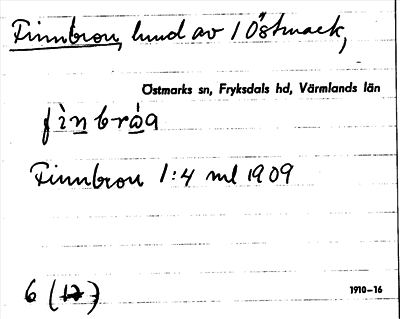 Finnbron, hund av 1 Östmark,
Östmarks sn, Fryksdals hd, Värmlands län
fìnbròa
Finnbron 1:4 ml 1909
6 (17)
1910-16